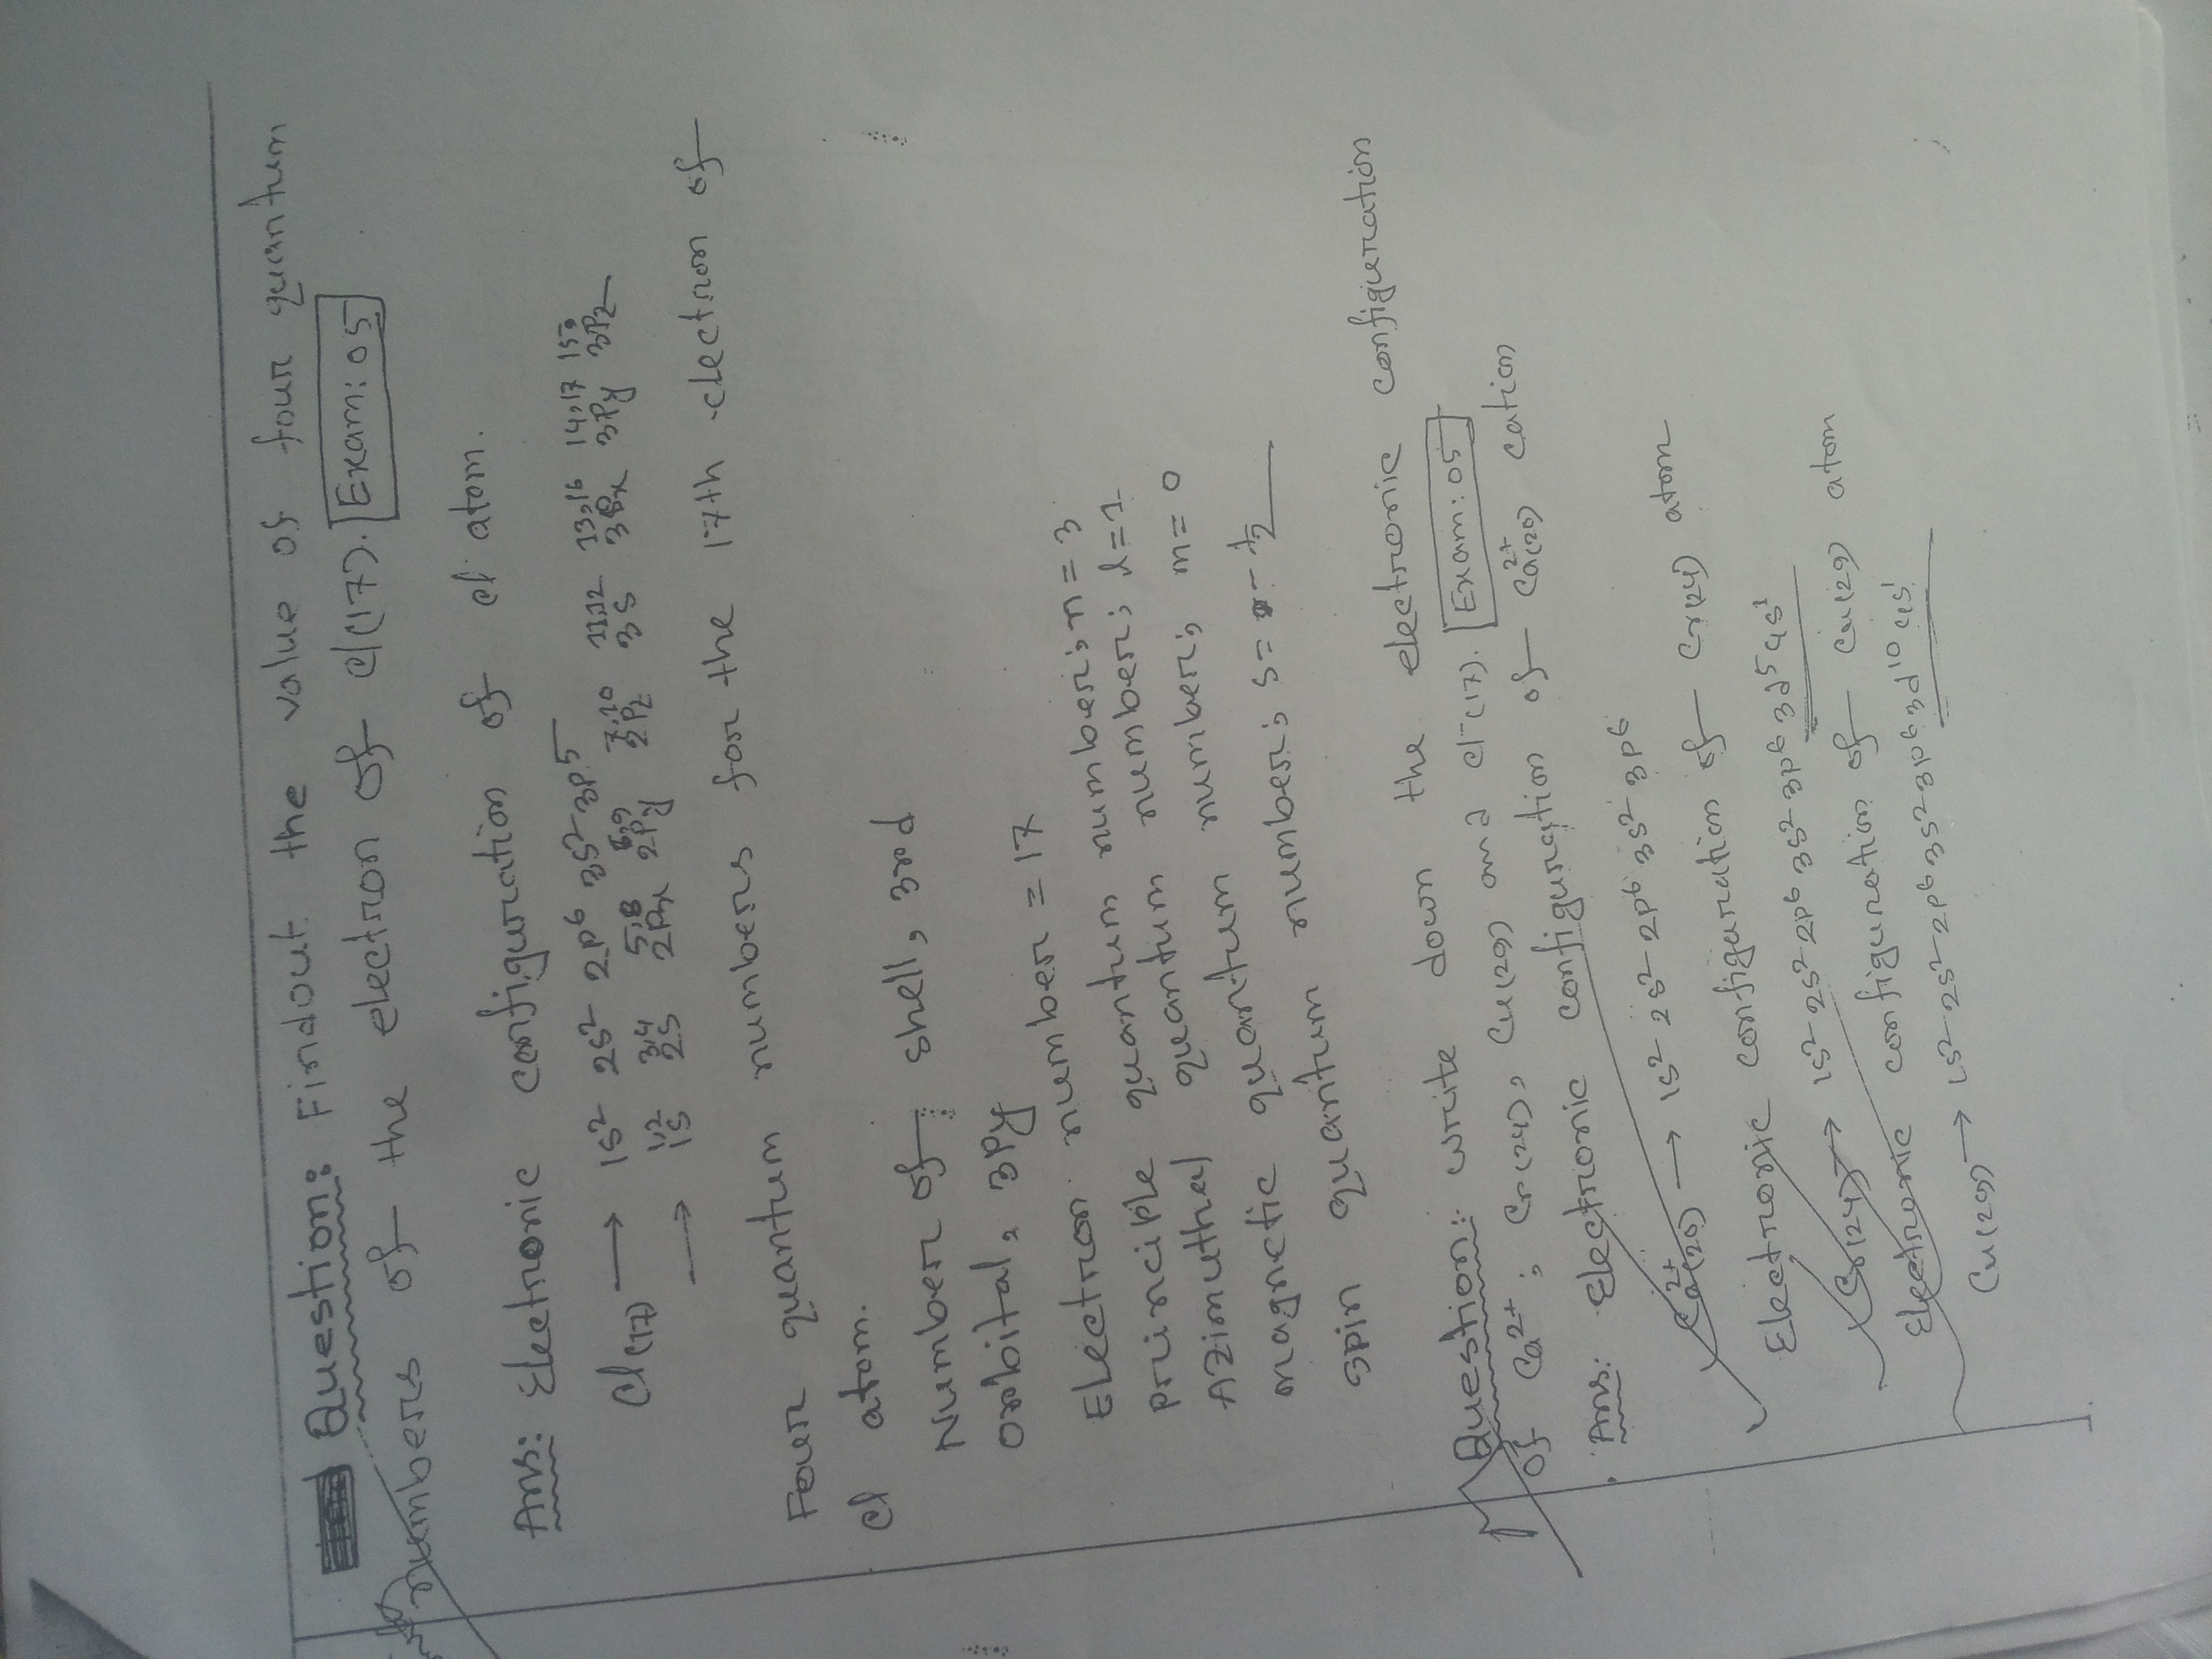 Question: Findout the value of four quantum
numbers of the electron of Cl(17). Exam: 05
Ans: Electronic configuration of Cl atom.
Cl(17) → 1s² 2s² 2p⁶ 3s² 3p⁵
1,2 3,4 5,8 6,9 7,10 11,12 13,16 14,17 15,
→ 1s 2s 2Px 2Py 2Pz 3s 3Px 3Py 3Pz
Four quantum numbers for the 17th electron of
Cl atom.
Number of shell, 3rd
Orbital, 3Py
Electron number = 17
Principle quantum number; n = 3
Azimuthal quantum number; l = 1
Magnetic quantum number; m = 0
Spin quantum number; s = - 1/2
Question: Write down the electronic configuration
of Ca²⁺; Cr(24), Cu(29) and Cl⁻(17). Exam: 05
Ans: Electronic configuration of Ca²⁺(20) cation
Ca²⁺(20) → 1s² 2s² 2p⁶ 3s² 3p⁶
Electronic configuration of Cr(24) atom
Cr(24) → 1s² 2s² 2p⁶ 3s² 3p⁶ 3d⁵ 4s¹
Electronic configuration of Cu(29) atom
Cu(29) → 1s² 2s² 2p⁶ 3s² 3p⁶ 3d¹⁰ 4s¹